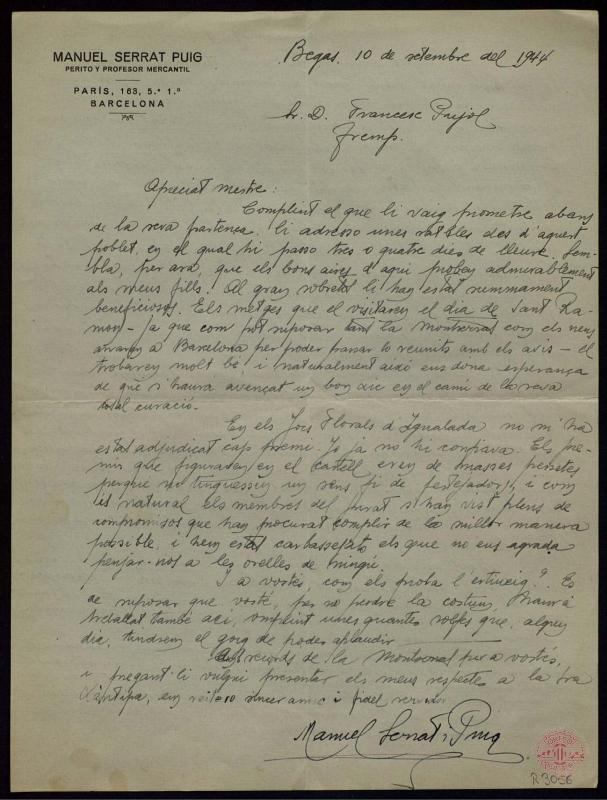 MANUEL SERRAT PUIG
PERITO Y PROFESOR MERCANTIL
PARÍS, 163, 5.º 1.ª
BARCELONA
Begas, 10 de setembre del 1944
Sr. D. Francesc Pujol
Tremp.
Apreciat mestre:
Complint el que li vaig prometre abans
de la seva partença, li adreço unes ratlles des d'aquest
poblet, en el qual hi passo tres o quatre dies de lleure. Sem-
bla, per ara, que els bons aires d'aquí proben admirablement
als meus fills. Al gran sobretot li han estat summament
beneficiosos. Els metges que el visitaren el dia de Sant Ra-
mon - ja que com pot suposar tant la Montserrat com els nens
anaren a Barcelona per poder passar-lo reunits amb els avis - el
trobaren molt bé, i naturalment això ens dona esperança
de què s'haurà avençat un bon dic en el camí de la seva
total curació.
En els Jocs Florals d'Igualada no m'ha
estat adjudicat cap premi. Jo ja no hi confiava. Els pre-
mis que figuraven en el cartell eren de masses pessetes
perquè no tinguessin un sens fi de festejadors, i com
és natural els membres del Jurat s'han vist plens de
compromisos que han procurat complir de la millor manera
possible, i hem estat carbassejats els que no ens agrada
penjar-nos a les orelles de ningú.
I a vostès, com els proba l'estiueig? Es
de suposar que vostè, per no perdre la costum, haurà
treballat també ací, omplint unes quantes solfes que, algun
dia, tindrem el goig de poder aplaudir.
records de la Montserrat per a vostès,
i pregant-li vulgui presentar els meus respectes a la Sra
sincer amic i fidel servidor
Manuel Serrat i Puig
R 3056